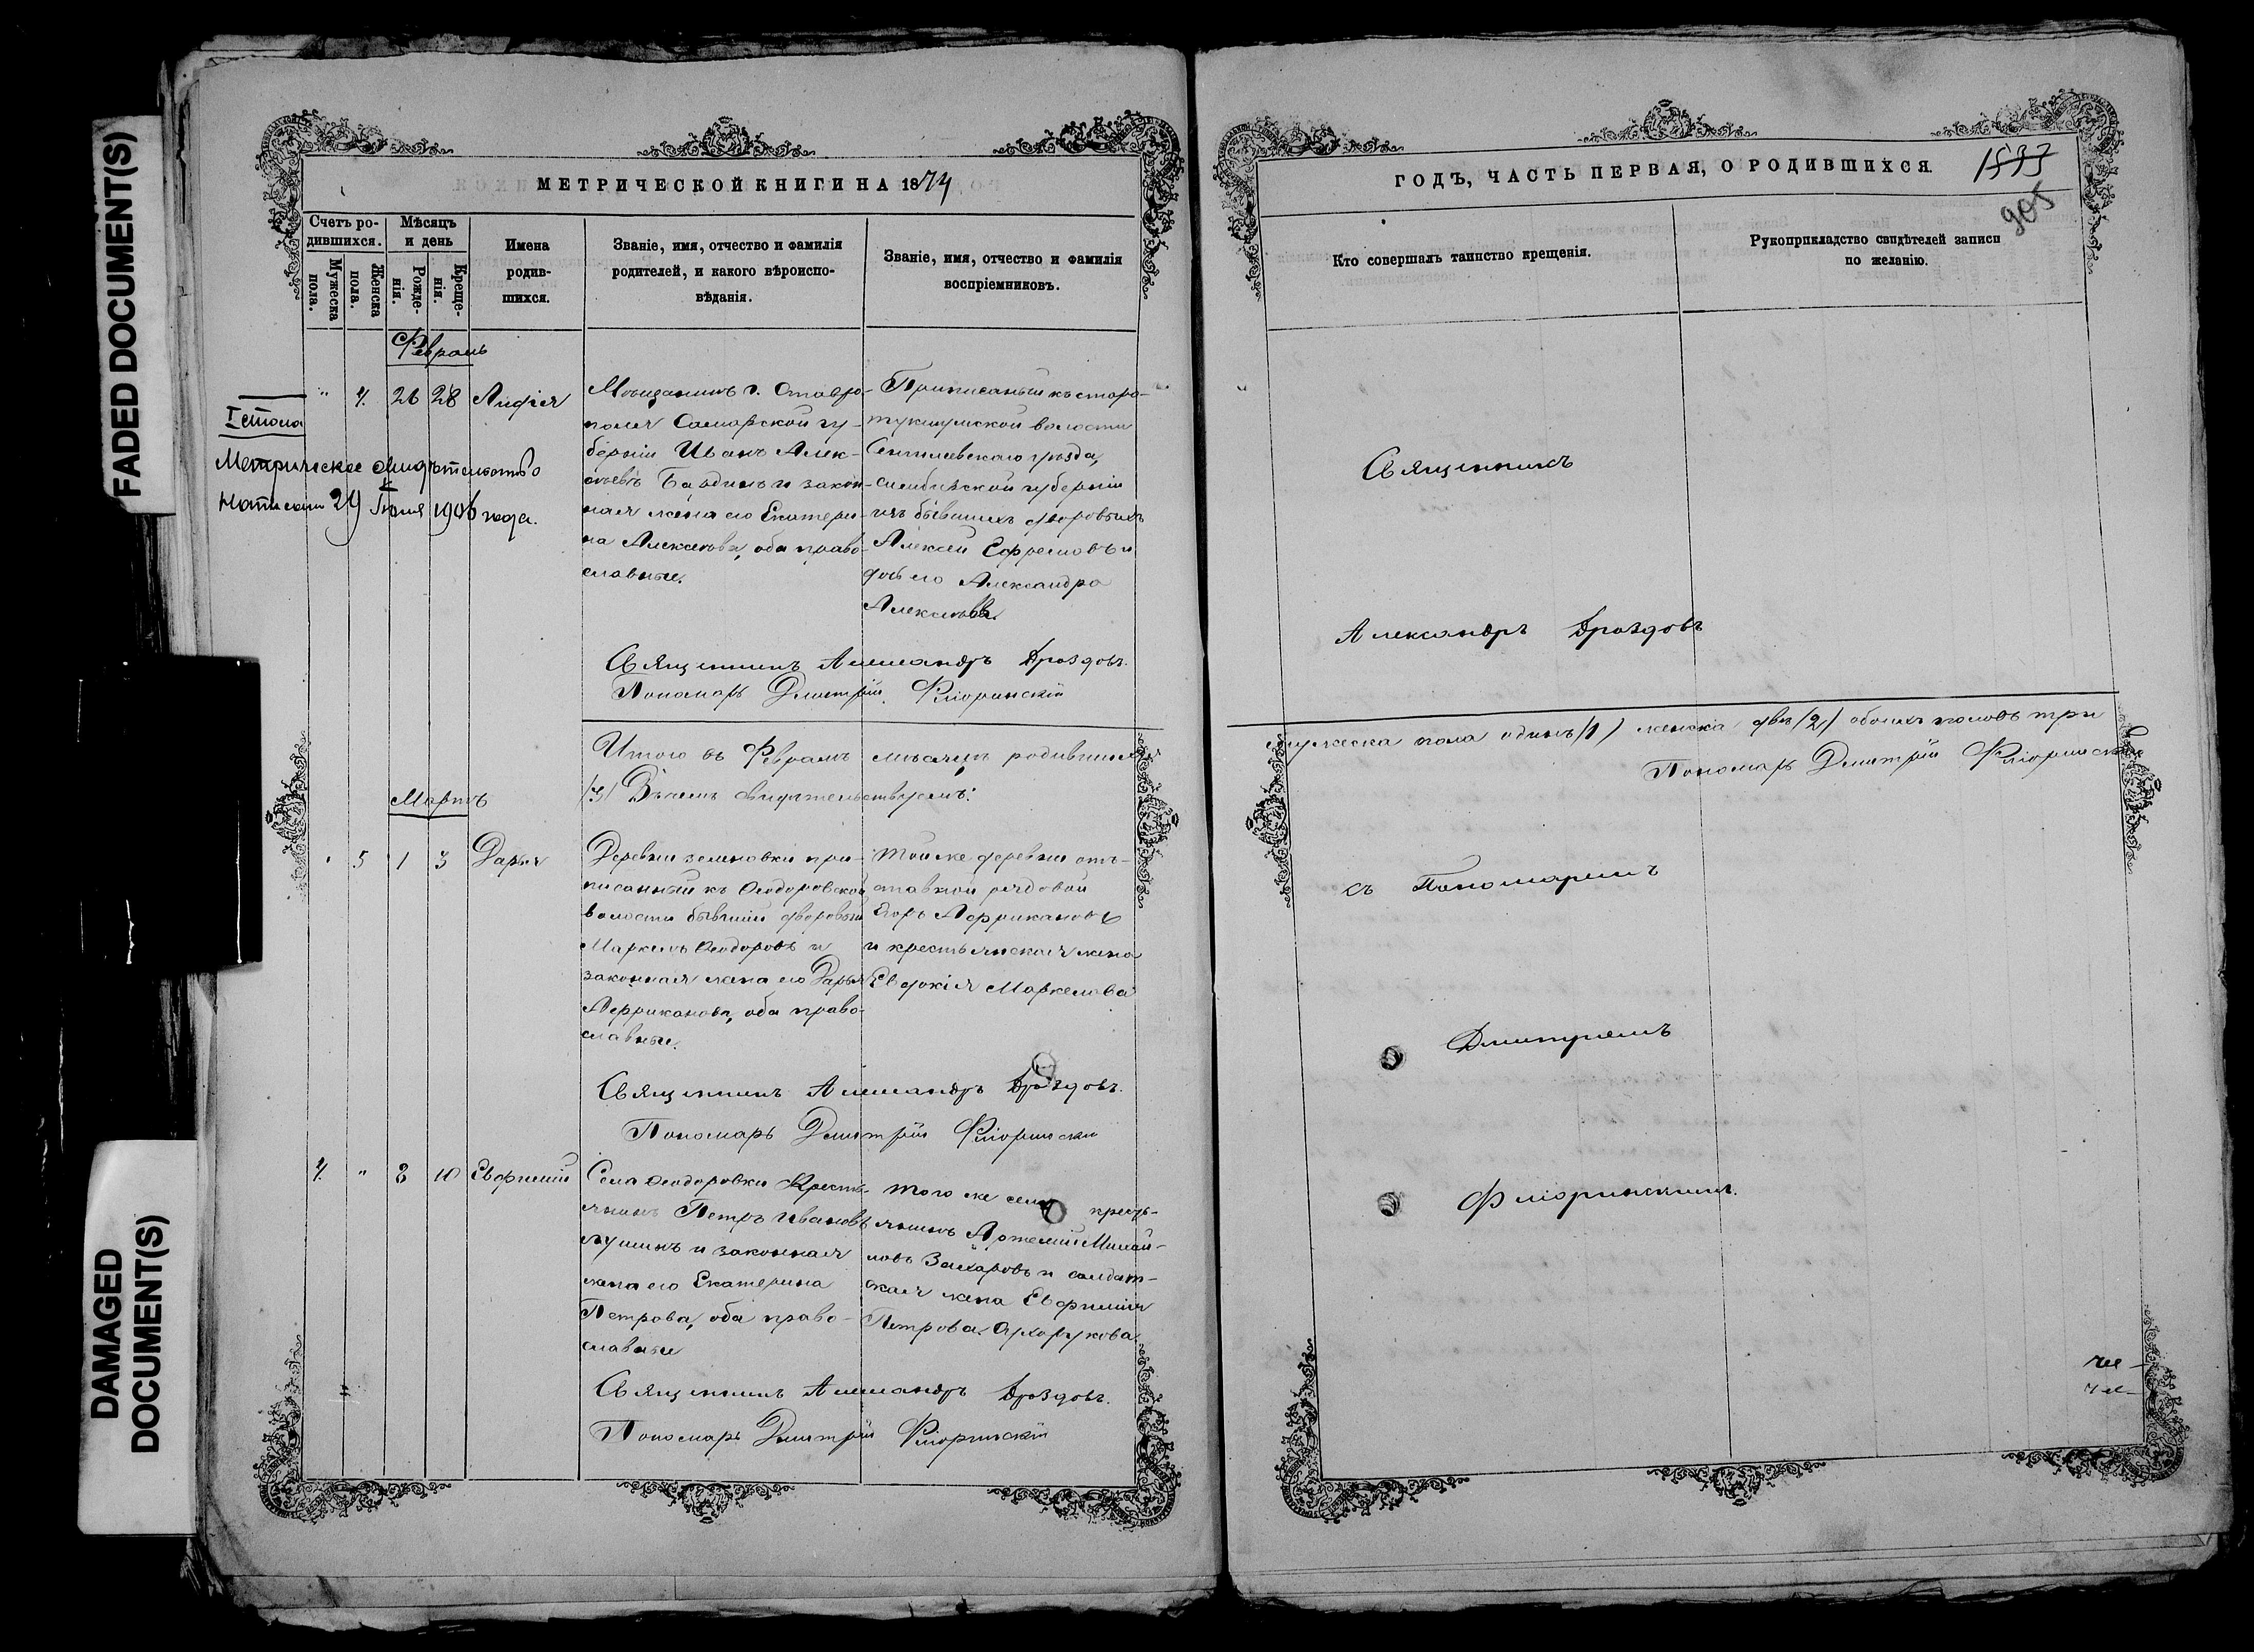 FADED DOCUMENT(S)
DAMAGED
DOCUMENT(S)
МЕТРИЧЕСКОЙ КНИГИ НА 1874
Счетъ ро-
дившихся.
Мужеска
пола.
Женска
пола.
Мѣсяцъ
и день
Рожде-
нія.
Креще-
нія.
Имена
родив-
шихся.
Званіе, имя, отчество и фамилія
родителей, и какого вѣроиспо-
вѣданія.
Званіе, имя, отчество и фамилія
воспріемниковъ.
Февраль
" 4. 26 28
Мѣщанинъ г. Ставро-
поля Самарской гу-
берніи Иванъ Алек-
сѣевъ Бардинъ и закон-
ная жена его Екатери-
на Алексѣева, оба право-
славные.
Приписаный къ старо-
тукшумской волости
Сенгилевскаго уѣзда,
симбирской губерніи
изъ бывшихъ дворовыхъ
Алексѣй Ефремовъ и
дочь его Александра
Алексѣева.
Метрическое свидѣтельство
24 1906 года.
Священникъ Александръ Дроздовъ.
Пономарь Дмитрій Фліоринскій
Итого въ Февралѣ мѣсяцѣ родившихся
/3/ Въ чемъ свидѣтельствуемъ:
Мартъ
" 5 1 3 Дарья
Деревни зеленовки при-
писанный къ Ѳеодоровской
волости бывшій дворовый
Маркелъ Ѳеодоровъ и
законная жена его Дарья
Африканова, оба право-
славные.
Той же деревни от-
ставной рядовой
Егоръ Африкановъ
и крестьянская жена
Евдокія Маркелова
Священникъ Александръ Дроздовъ.
Пономарь Дмитрій Фліоринскій
4. " 8 10 Евфимій
Села Ѳеодоровки Кресть-
янинъ Петръ Ивановъ
и законная
жена его Екатерина
Петрова, оба право-
славные
Того же села кресть-
янинъ Артемій Михай-
ловъ Захаровъ и солдат-
ская жена Евфимія
Петрова
Священникъ Александръ Дроздовъ.
Пономарь Дмитрій Фліоринскій
ГОДЪ, ЧАСТЬ ПЕРВАЯ, О РОДИВШИХСЯ.
1533
905
Кто совершалъ таинство крещенія.
Рукоприкладство свидѣтелей записи
по желанію.
Священникъ
Александръ Дроздовъ
мужеска пола одинъ /1/ женска двѣ /2/ обоихъ половъ три
Пономарь Дмитрій Фліоринскій
съ Пономаремъ
Дмитріемъ
Фліоринскимъ.